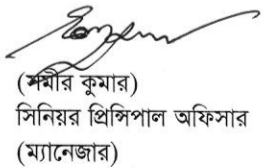 (সমীর কুমার)
সিনিয়র প্রিন্সিপাল অফিসার
(ম্যানেজার)